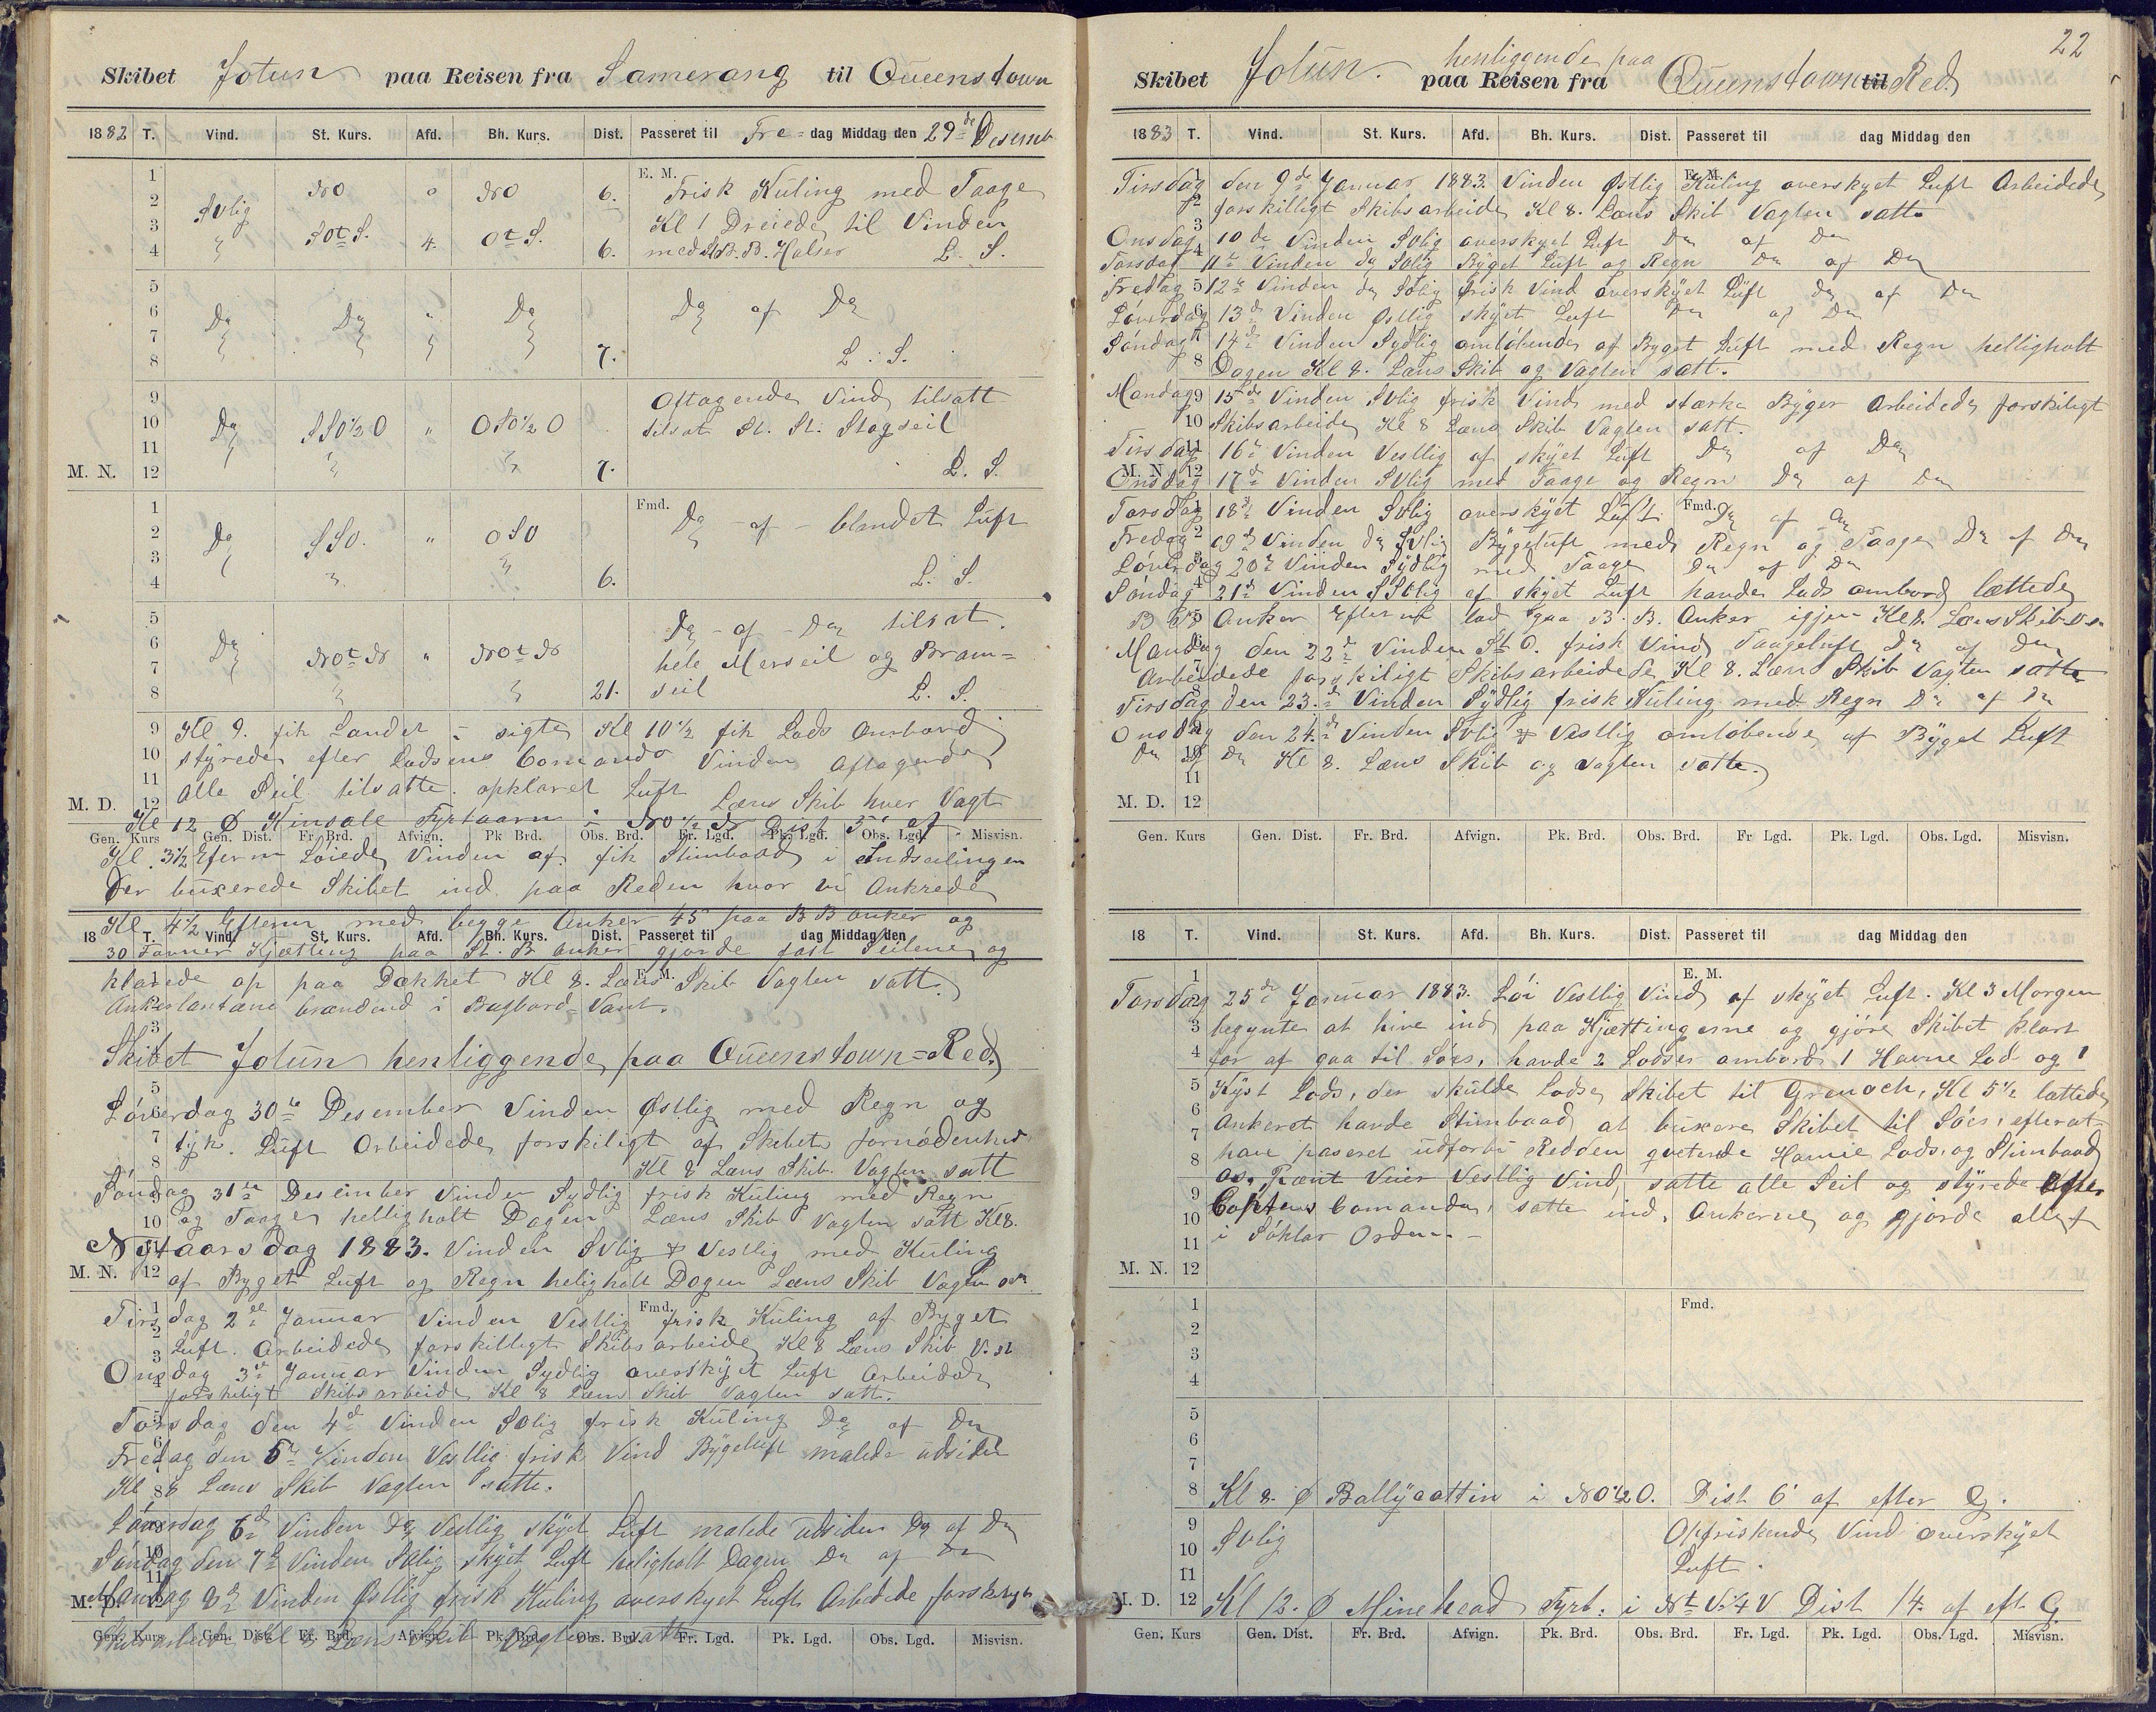 Skibet Jotun paa Reisen fra Samerang til Queenstown
1882 T. Vind. St. Kurs. Afd. Bh. Kurs. Dist. Passeret til Fre=dag Middag den 29de Desemb
E. M.
1
2 Svlig NO " NO 6. Frisk Kuling med Taage
3 Kl 1 Dreiede til Vinden
4 SOtS. 4. OtS. 6. med B.B. Halser L. S.
5
6 Do Do " Do Do af Do
7
8 7. L. S.
9 Aftagende Vind tilsatt
10 Do SSO½O " OSO½O tilsat St. St. Stagseil
11
M. N. 12 7. L. S.
Fmd.
1 Do - af - blandet Luft
2 Do SSO. " OSO
3
4 6. L. S.
5 Do - af - Do tilsat.
6 Do NOtN " NOtN hele Merseil og Bram=
7 seil
8 21. L. S.
9 Kl 9. fik Landet i sigte Kl 10½ fik Lods Ombord
10 styrede efter Lodsens Comando Vinden Aftagende
11 alle Seil tilsatte. opklaret Luft Læns Skib hver Vagt
M. D. 12
Kl 12 Ø Kinsale Fyrtaarn i NO½N Dist 5' af
Gen. Kurs Gen. Dist. Fr. Brd. Afvign. Pk Brd. Obs. Brd. Fr. Lgd. Pk. Lgd. Obs. Lgd. Misvisn.
Kl 3½ Efterm Løiede Vinden af. fik Stimbaad i Indseilingen
Der buxerede Skibet ind paa Reden hvor vi Ankrede
Kl 4½ Efterm med begge Anker 45 paa B B Anker og
18 T. Vind. St. Kurs. Afd. Bh. Kurs. Dist. Passeret til dag Middag den
30 Favner Kjætting paa St. B Anker gjorde fast Seilene og
klarede op paa Dækket Kl 8. Læns Skib Vagten satt.
Ankerlantærne brændend i Bagbord=Vant.
Skibet Jotun henliggende paa Queenstown=Red.
Löverdag 30te Desember Vinden Østlig med Regn og
tyk. Luft Arbeidede forskiligt af Skibets fornödenhed
Kl 8 Læns Skib. Vagten satt
Söndag 31te Desember Vinden Sydlig frisk Kuling med Regn
og Taage helligholt Dagen Læns Skib Vagten satt Kl 8.
Nytaarsdag 1883. Vinden Svlig & Vestlig med Kuling
M. N. 12
af Byget Luft og Regn heligholt Dagen Læns Skib Vagten
Fmd.
Tirsdag 2de Januar Vinden Vestlig frisk Kuling af Byget
Luft. Arbeidede forskilligt Skibsarbeide Kl 8 Læns Skib V. st
Onsdag 3de Januar Vinden Sydlig overskyet Luft Arbeidede
forskeligt Skibsarbeide Kl 8 Læns Skib Vagten satt.
Torsdag den 4de Vinden Solig frisk Kuling Do af Do
Fredag den 5te Vinden Vestlig frisk Vind Bygeluft malede udsiden
Kl 8 Læns Skib Vagten satte.
Löverdag 6de Vinden Do Vestlig skyet Luft malede udsiden Do af Do
Söndag den 7de Vinden Solig skyet Luft heligholt Dagen Do af Do
M. D.
Mandag 8de Vinden Østlig frisk Kuling overskyet Luft Arbedede forskeligt
Skibsarbeide Kl 8 Læns Skib Vagten satt
Gen. Kurs Gen. Dist. Fr. Brd. Afvign. Pk. Brd. Obs. Brd. Fr. Lgd. Pk. Lgd. Obs. Lgd. Misvisn.
22
henliggende paa
Skibet Jotun. paa Reisen fra Queenstown til Red.
1883 T. Vind. St. Kurs. Afd. Bh. Kurs. Dist. Passeret til dag Middag den
E. M.
Tirsdag den 9de Januar 1883. Vinden Østlig Kuling overskyet Luft Arbeidede
forskilligt Skibsarbeide Kl 8. Læns Skib Vagten satte
Onsdag 10de Vinden Solig overskyet Luft Do af Do
Torsdag 11te Vinden Do Solig Byget Luft og Regn Do af Do
Fredag 12te Vinden Do Solig frisk Vind overskyet Luft Do af Do
Löverdag 13de Vinden Østlig skyet Luft Do af Do
Söndag 14de Vinden Sydlig omlöbende af Byget Luft med Regn helligholt
Dagen Kl 8. Læns Skib og Vagten satt.
Mandag 15de Vinden Svlig frisk Vind med stærke Byger Arbeidede forskiligt
Skibsarbeide Kl 8 Læns Skib Vagten satt.
Tirsdag 16de Vinden Vestlig af skyet Luft Do af Do
M. N. 12
Onsdag 17de Vinden SVlig med Taage og Regn Do af Do
Fmd.
Torsdag 18de Vinden Svlig overskyet Luft. Do af Do
Fredag 19de Vinden Do Svlig Bygeluft med Regn og Taage Do af Do
Löverdag 20de Vinden Sydlig med Taage Do af Do
Söndag 21de Vinden SSVlig af skyet Luft havde Lods ombord lættede
B B Anker Efterat lod gaa B. B. Anker igjen Kl 8. Læns Skib
Mandag den 22de Vinden StO. frisk Vind Taageluft Do af Do
Arbeidede forskiligt Skibsarbeidede Kl 8. Læns Skib Vagten satte
Tirsdag den 23de Vinden Sydlig frisk Kuling med Regn Do af Do
Onsdag den 24de Vinden Svlig & Vestlig omlöbende af Byget Luft
Do af Do Kl 8. Læns Skib og Vagten satte.
11
M. D. 12
Gen. Kurs Gen. Dist. Fr. Brd. Afvign. Pk. Brd. Obs. Brd. Fr Lgd. Pk. Lgd. Obs. Lgd. Misvisn.
18 T. Vind. St. Kurs. Afd. Bh. Kurs. Dist. Passeret til dag Middag den
1 E. M.
Torsdag 25de Januar 1883. Löi Vestlig Vind af skyet Luft. Kl 3 Morgen
3 begynte at hive ind paa Kjættingerne og gjöre Skibet klart
4 for at gaa til Söes, havde 2 Lodser ombord 1 Havne Lods og 1
5 Kyst Lods, der skulde Lodse Skibet til Grenoch, Kl 5½ lættede
6 Ankeret havde Stimbaad at buxere Skibet til Söes, efterat
7 have paseret udforbi Redden qveterede Havne Lods og Stimbaad
8 os. Pænt Veier Vestlig Vind, satte alle Seil og styrede efter
9 Captens Comando, satte ind. Ankerne og gjorde allet
10 i Söklar Orden. -
11
M. N. 12
1 Fmd.
2
3
4
5
6
7
8 Kl 8. Ø Ballycottin i NO½O. Dist 6' af efter G.
9 Svlig Opfriskende Vind overskyet
10 Luft.
11
M. D. 12 Kl 12. Ø Minehead Fyrt. i NtV¼V Dist 14. af eft G.
Gen. Kurs Gen. Dist. Fr. Brd. Afvign. Pk. Brd. Obs. Brd. Fr. Lgd. Pk. Lgd. Obs. Lgd. Misvisn.